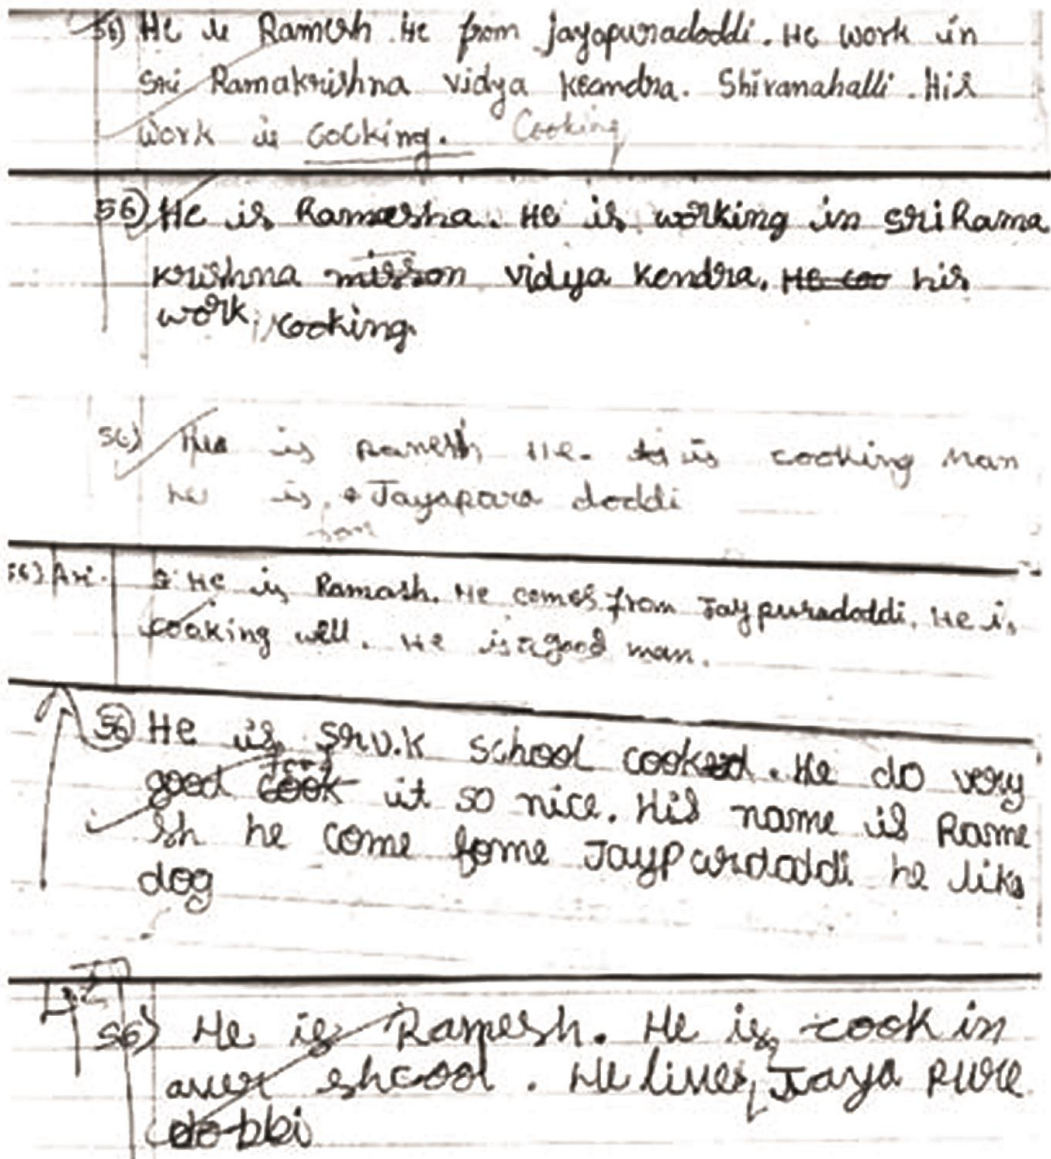 56) He is Ramesh. He from Jayapuradoddi. He work in
Sri Ramakrishna vidya Keandra. Shivanahalli. His
work is cocking. Cooking
56) He is Ramesha. He is working in sri Rama
krishna misson vidya kendra. He coo his
work, cooking.
56) is Ramesh He. is cooking man
he is Jayapara doddi
from
56) Ans. He is Ramash. He comes from Jaypuradoddi. He is
cooking well. He is a good man.
56 He is SRV.K school cooked. He do very
good cook food it so nice. His name is Rame
sh he come fome Jaypurdoddi he like
dog
56) He is Ramesh. He is cook in
aver shcool. He lives Jaya pure
dobbi